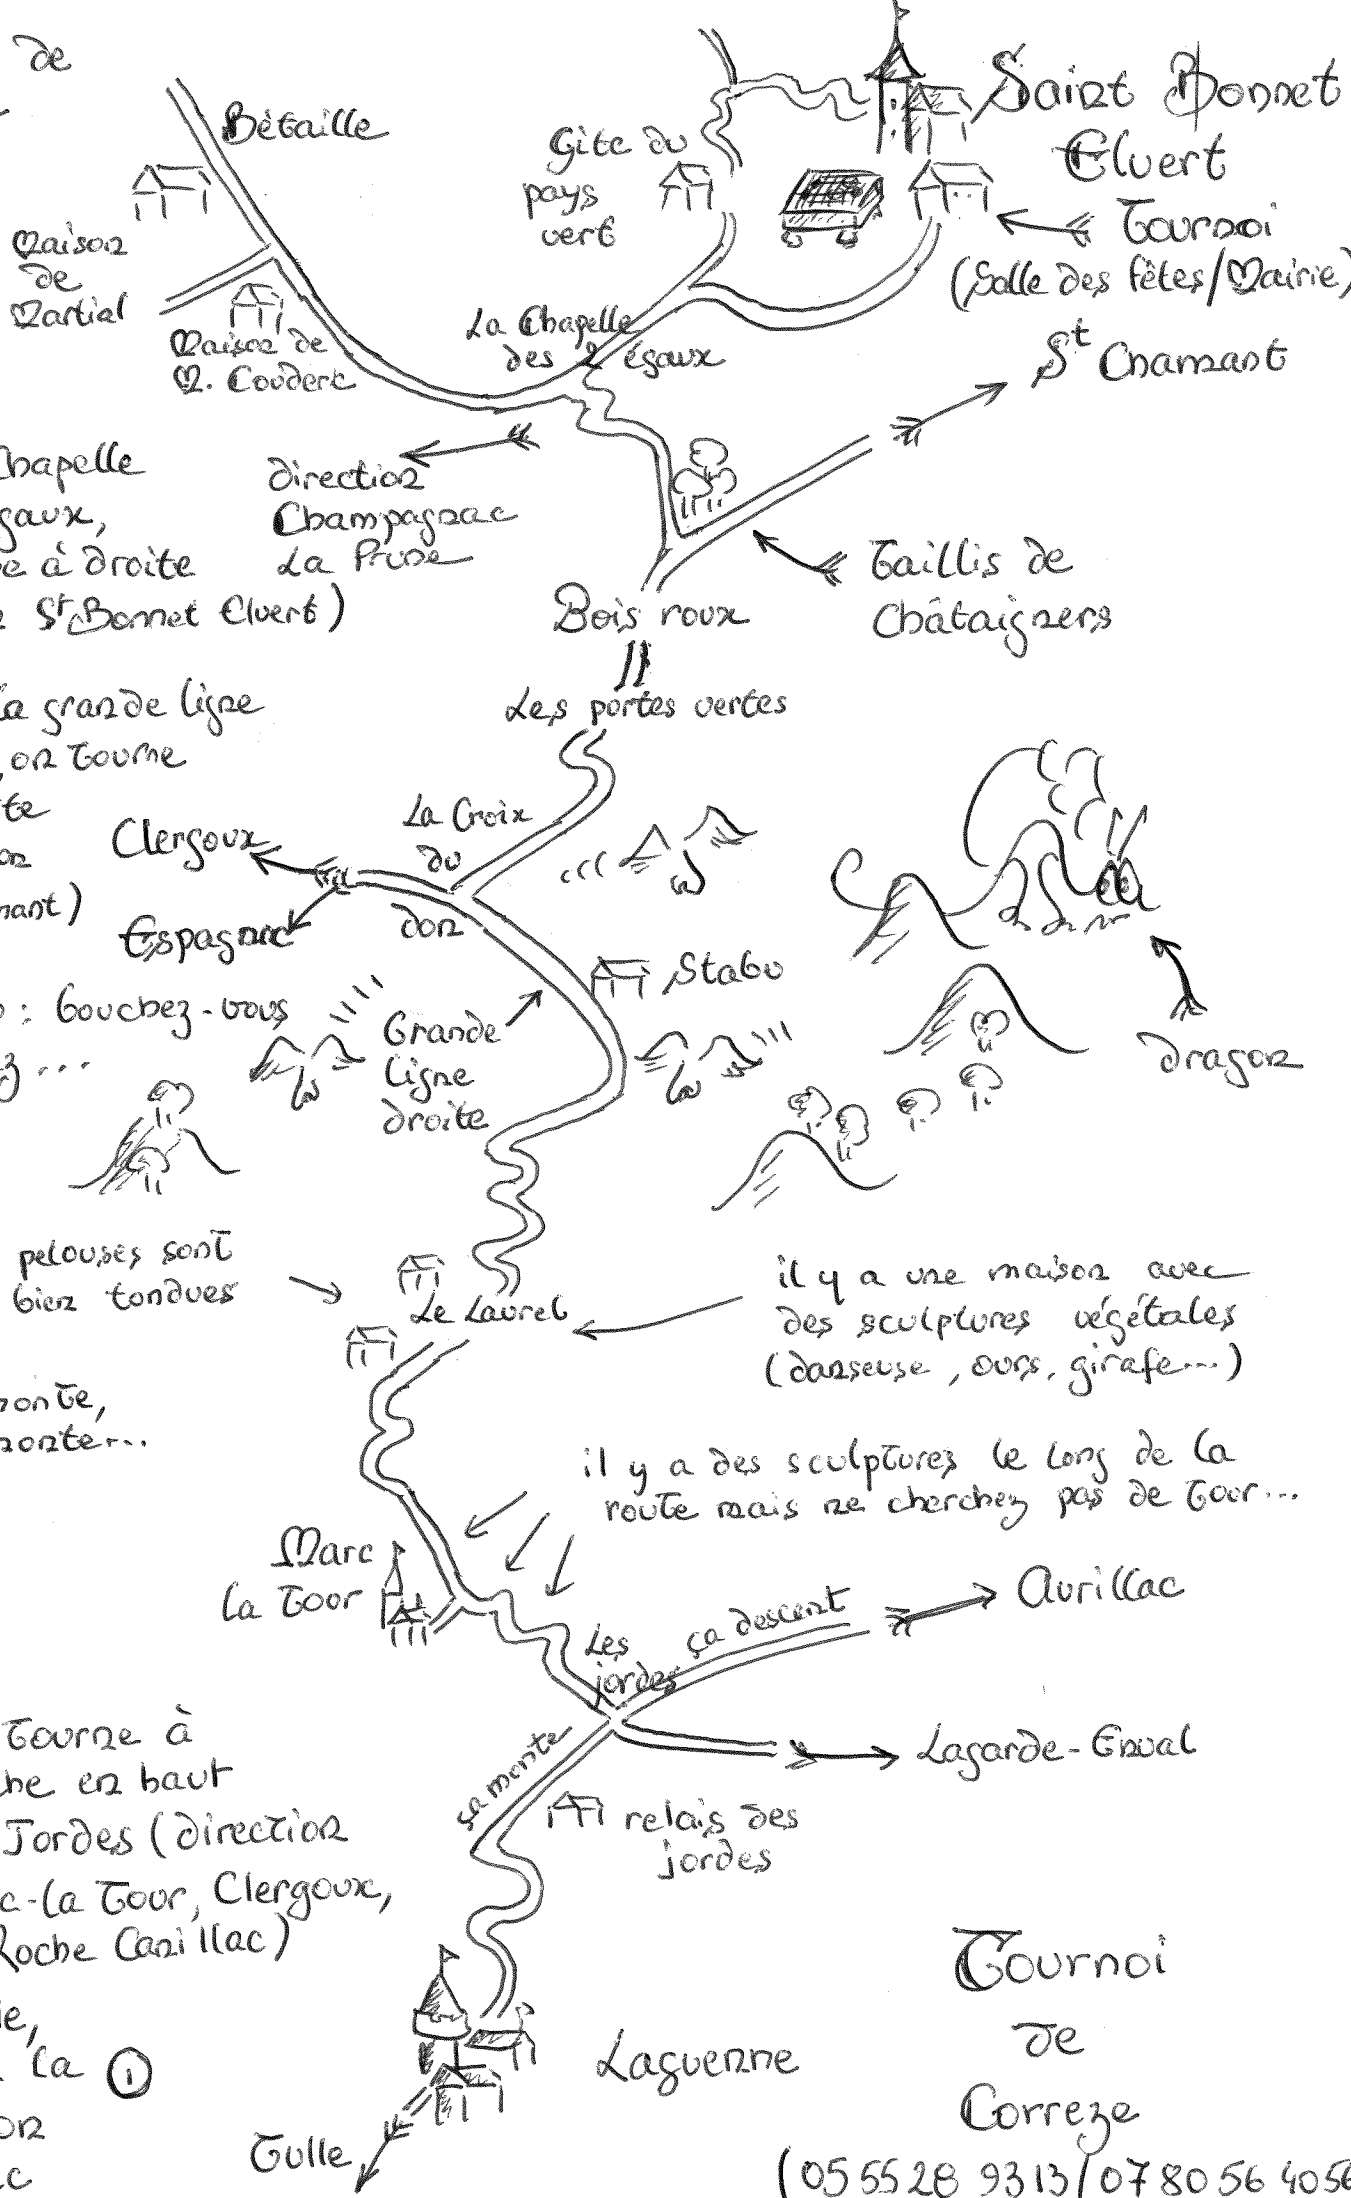 de
Saint Bonnet
Elvert
Bétaille
Gîte du
pays
vert
Tournoi
(Salle des fêtes/Mairie)
Maison
de
Martial
Maison de
M. Couderc
La Chapelle
des 2 égaux
St Chamant
Chapelle
gaux,
e à droite
St Bonnet Elvert)
direction
Champagnac
La Prune
Taillis de
Châtaigners
Bois roux
Les portes vertes
la grande ligne
, on tourne
te
on
mant)
Clergoux
Espagnac
La Croix
du
don
Stabu
: bouchez-vous
z...
Grande
ligne
droite
dragon
pelouses sont
bien tondues
Le Laurel
il y a une maison avec
des sculptures végétales
(danseuse, ours, girafe...)
monte,
monte...
il y a des sculptures le long de la
route mais ne cherchez pas de tour...
Marc
la Tour
Aurillac
ça descent
Les
jordes
Lagarde-Enval
ça monte
relais des
jordes
Tourne à
che en haut
Jordes (direction
c-la Tour, Clergoux,
Roche Canillac)
ie,
la 1
on
c
Laguenne
Tulle
Tournoi
de
Correze
(05 55 28 93 13/07 80 56 40 56